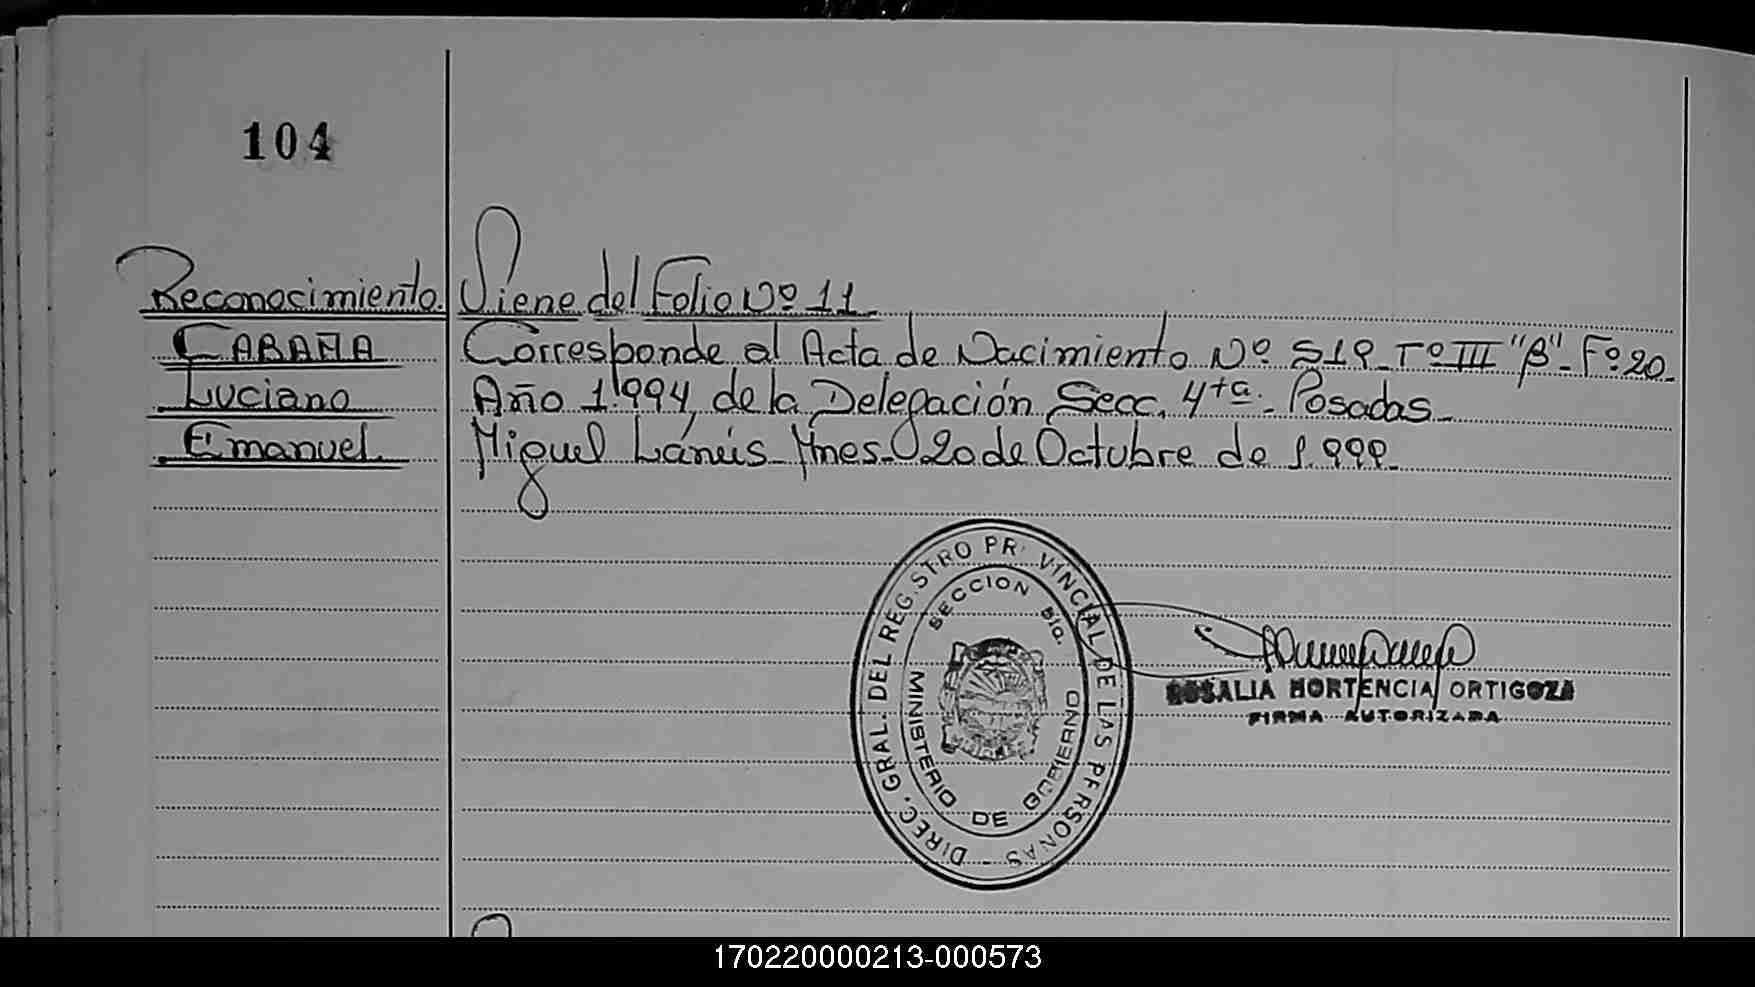 104
Reconocimiento. Viene del Folio Nº 11
CABAÑA Corresponde al Acta de Nacimiento Nº 519 Tº III "B" - Fº 20.
Luciano Año 1.994, de la Delegación Secc. 4ta. Posadas -
Emanuel. Miguel Lanús - Mnes. 20 de Octubre de 1.999.
DIREC. GRAL. DEL REGISTRO PR VINCIAL DE LAS PERSONAS -
SECCION 5ta.
MINISTERIO DE GOBIERNO
ROSALIA HORTENCIA ORTIGOZA
FIRMA AUTORIZADA
170220000213-000573